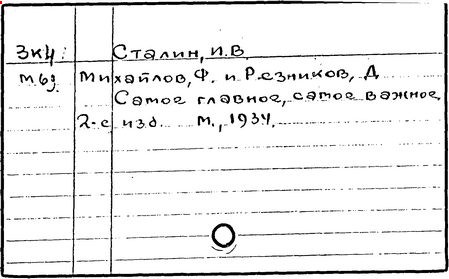 ЗКЧ Сталин, И.В.
М69 Михайлов, Ф. и Резников, Д.
Самое главное, самое важное.
2-е изд. М., 1934.